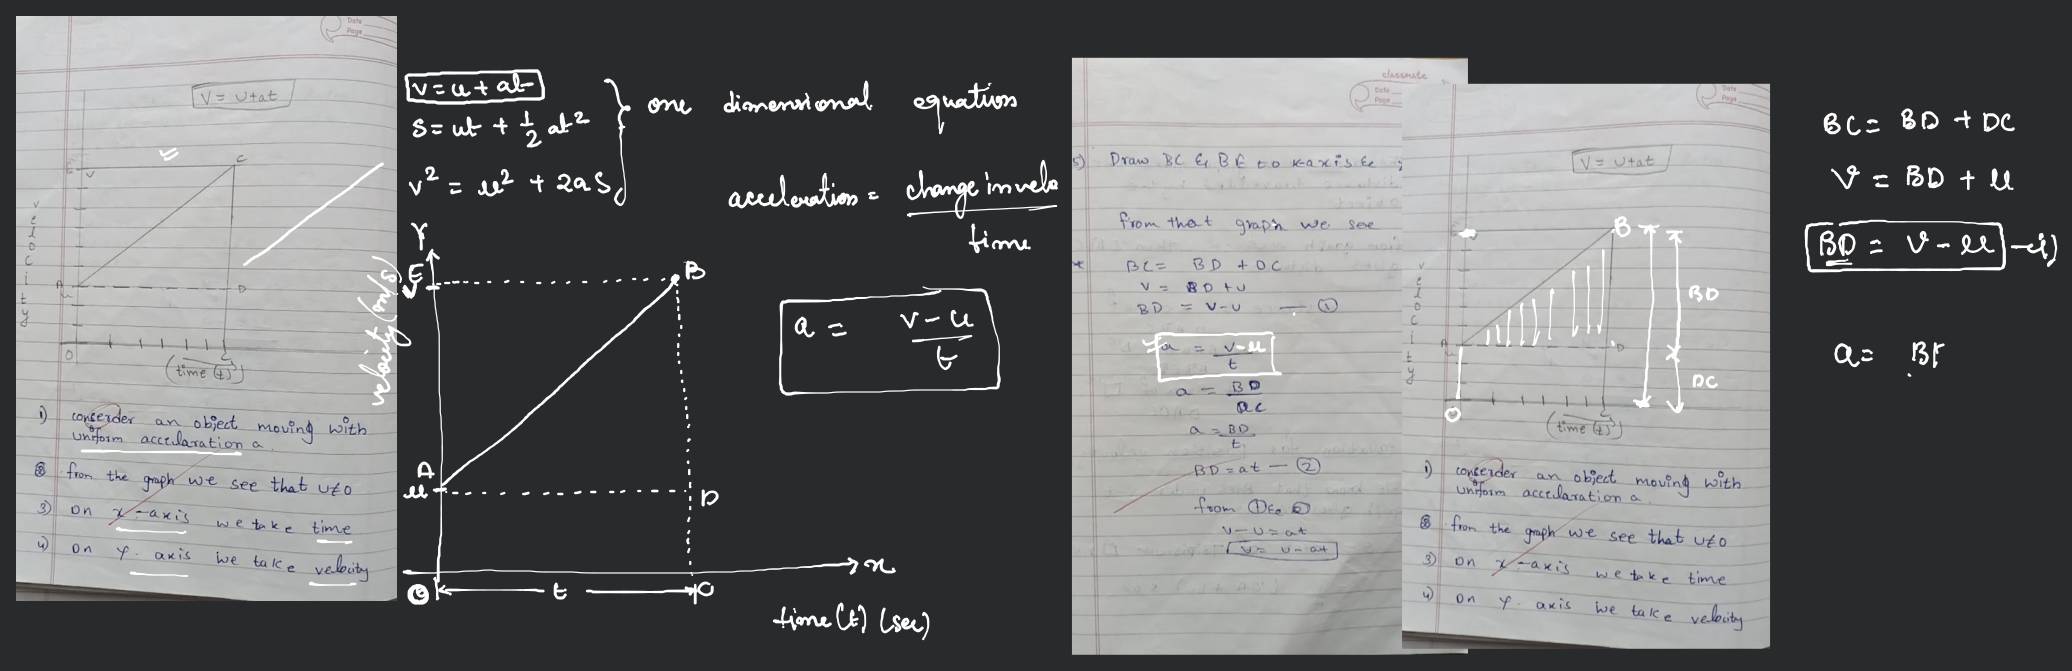 Date
Page
V = U+at
E
V
C
velocity
A
u
D
O
C
(time (t))
1) conserder an object moving with
uniform accelaration a
2) from the graph we see that u≠0
3) on x-axis we take time
4) on y. axis we take velocity
v = u + at
S = ut + 1/2 at²
v² = u² + 2aS
one dimensional equations
acceleration = change in velo
time
a = v - u
t
Y
velocity (m/s)
E
v
B
A
u
D
O
t
C
x
time (t) (sec)
classmate
Date
Page
5) Draw BC & BE to x-axis &
from that graph we see
* BC = BD + DC
V = BD + U
BD = V-U — ①
a = v-u
t
a = BD
OC
a = BD
t
BD = at — ②
from ① & ②
v-u = at
v = u-at
Date
Page
V = U+at
B
velocity
A
u
D
O
C
(time (t))
BD
DC
1) conserder an object moving with
uniform accelaration a
2) from the graph we see that u≠0
3) on x-axis we take time
4) on y. axis we take velocity
BC = BD + DC
v = BD + u
BD = v - u —i)
a =